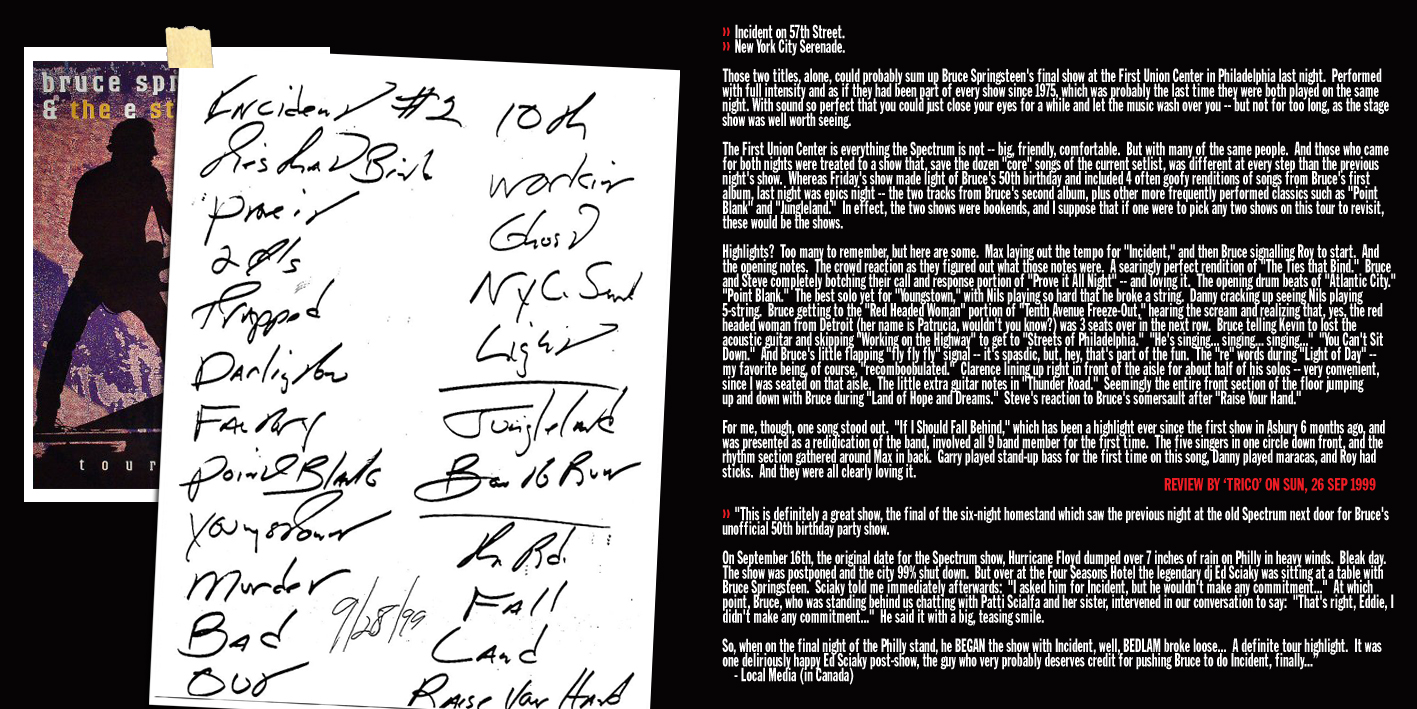 bruce spr
& the e st
tour
Incident #2
Ties that Bind
Prove it
2 ♥/s
Trapped
Darlington
Factory
Point Blank
Youngstown
Murder
Bad
Out
9/28/99
10th
Workin
Ghost
NYC. Send
Light
Jungleland
Born to Run
Th Rd.
Fall
Land
Raise Your Hand
» Incident on 57th Street.
» New York City Serenade.
Those two titles, alone, could probably sum up Bruce Springsteen's final show at the First Union Center in Philadelphia last night. Performed
with full intensity and as if they had been part of every show since 1975, which was probably the last time they were both played on the same
night. With sound so perfect that you could just close your eyes for a while and let the music wash over you -- but not for too long, as the stage
show was well worth seeing.
The First Union Center is everything the Spectrum is not -- big, friendly, comfortable. But with many of the same people. And those who came
for both nights were treated to a show that, save the dozen "core" songs of the current setlist, was different at every step than the previous
night's show. Whereas Friday's show made light of Bruce's 50th birthday and included 4 often goofy renditions of songs from Bruce's first
album, last night was epics night -- the two tracks from Bruce's second album, plus other more frequently performed classics such as "Point
Blank" and "Jungleland." In effect, the two shows were bookends, and I suppose that if one were to pick any two shows on this tour to revisit,
these would be the shows.
Highlights? Too many to remember, but here are some. Max laying out the tempo for "Incident," and then Bruce signalling Roy to start. And
the opening notes. The crowd reaction as they figured out what those notes were. A searingly perfect rendition of "The Ties that Bind." Bruce
and Steve completely botching their call and response portion of "Prove it All Night" -- and loving it. The opening drum beats of "Atlantic City."
"Point Blank." The best solo yet for "Youngstown," with Nils playing so hard that he broke a string. Danny cracking up seeing Nils playing
5-string. Bruce getting to the "Red Headed Woman" portion of "Tenth Avenue Freeze-Out," hearing the scream and realizing that, yes, the red
headed woman from Detroit (her name is Patrucia, wouldn't you know?) was 3 seats over in the next row. Bruce telling Kevin to lost the
acoustic guitar and skipping "Working on the Highway" to get to "Streets of Philadelphia." "He's singing... singing... singing..." "You Can't Sit
Down." And Bruce's little flapping "fly fly fly" signal -- it's spasdic, but, hey, that's part of the fun. The "re" words during "Light of Day" --
my favorite being, of course, "recomboobulated." Clarence lining up right in front of the aisle for about half of his solos -- very convenient,
since I was seated on that aisle. The little extra guitar notes in "Thunder Road." Seemingly the entire front section of the floor jumping
up and down with Bruce during "Land of Hope and Dreams." Steve's reaction to Bruce's somersault after "Raise Your Hand."
For me, though, one song stood out. "If I Should Fall Behind," which has been a highlight ever since the first show in Asbury 6 months ago, and
was presented as a redidication of the band, involved all 9 band member for the first time. The five singers in one circle down front, and the
rhythm section gathered around Max in back. Garry played stand-up bass for the first time on this song, Danny played maracas, and Roy had
sticks. And they were all clearly loving it.
REVIEW BY 'TRICO' ON SUN, 26 SEP 1999
» "This is definitely a great show, the final of the six-night homestand which saw the previous night at the old Spectrum next door for Bruce's
unofficial 50th birthday party show.
On September 16th, the original date for the Spectrum show, Hurricane Floyd dumped over 7 inches of rain on Philly in heavy winds. Bleak day.
The show was postponed and the city 99% shut down. But over at the Four Seasons Hotel the legendary dj Ed Sciaky was sitting at a table with
Bruce Springsteen. Sciaky told me immediately afterwards: "I asked him for Incident, but he wouldn't make any commitment..." At which
point, Bruce, who was standing behind us chatting with Patti Scialfa and her sister, intervened in our conversation to say: "That's right, Eddie, I
didn't make any commitment..." He said it with a big, teasing smile.
So, when on the final night of the Philly stand, he BEGAN the show with Incident, well, BEDLAM broke loose... A definite tour highlight. It was
one deliriously happy Ed Sciaky post-show, the guy who very probably deserves credit for pushing Bruce to do Incident, finally..."
- Local Media (in Canada)